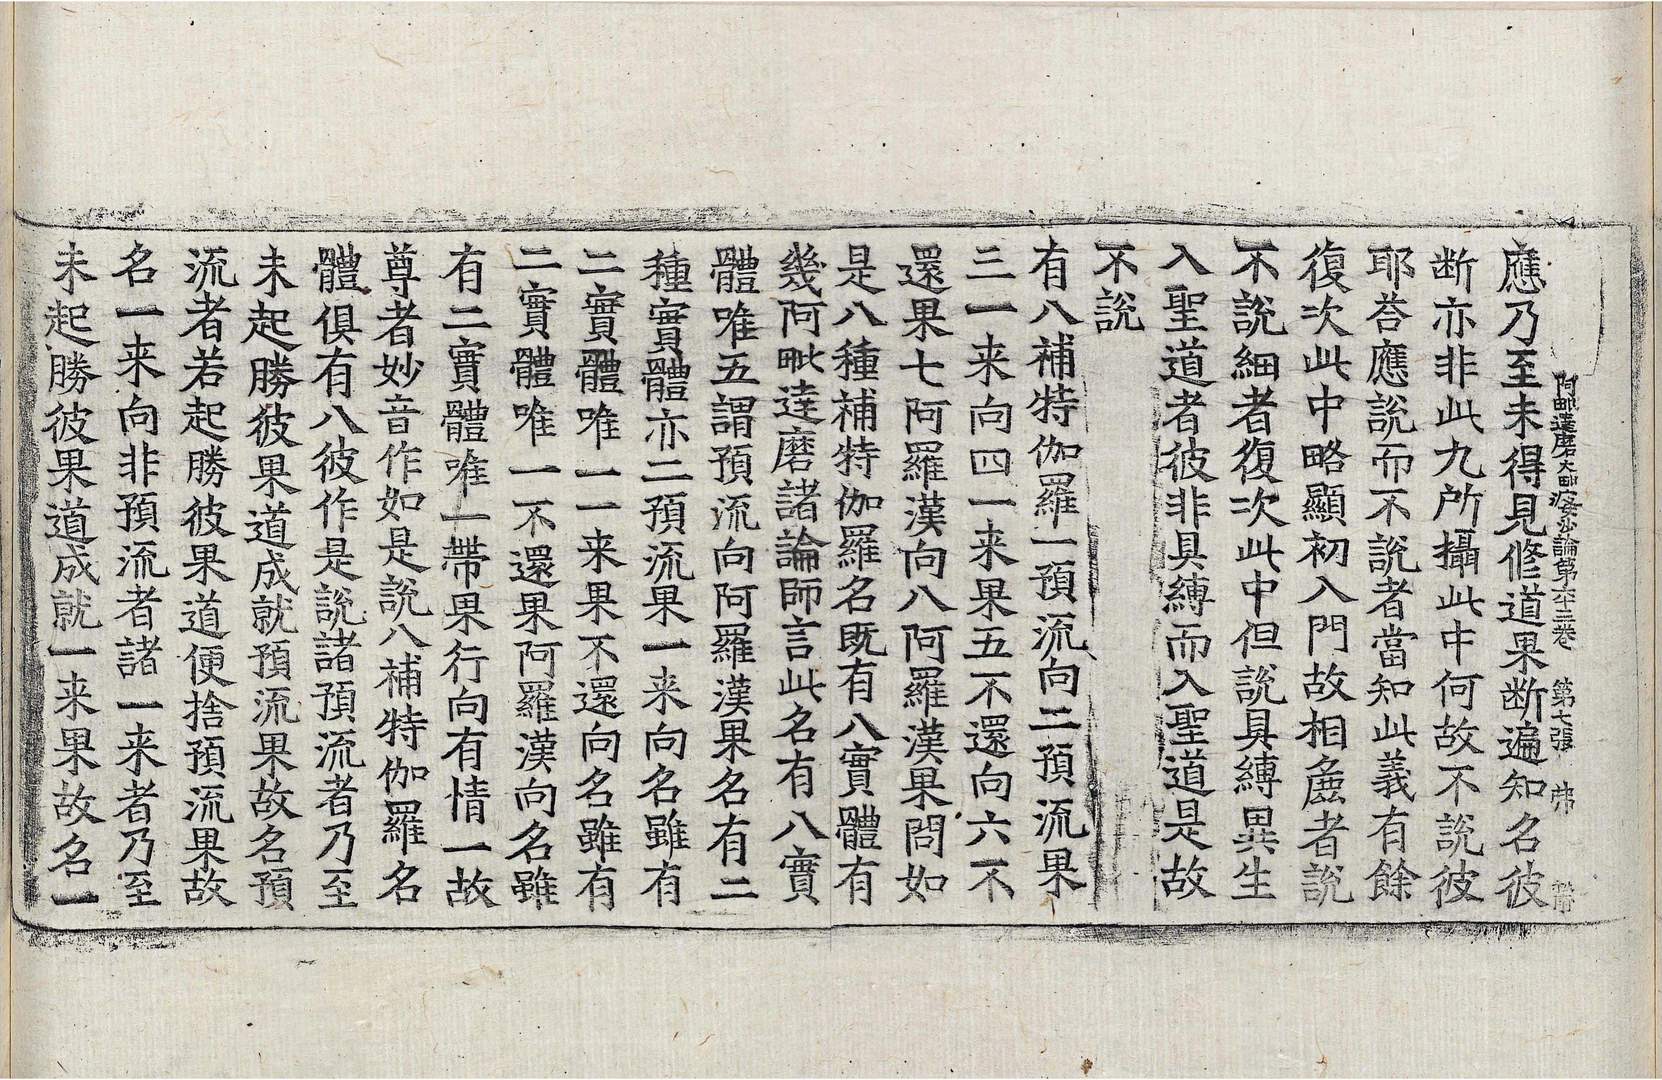 阿毗達磨大毗婆沙論第六十三卷 第七張
應乃至未得見修道果断遍知名彼
断亦非此九所攝此中何故不說彼
耶荅應說而不說者當知此義有餘
復次此中略顯初入門故相麁者說
不說細者復次此中但說具縛異生
入聖道者彼非具縛而入聖道是故
不說
有八補特伽羅一預流向二預流果
三一来向四一来果五不還向六不
還果七阿羅漢向八阿羅漢果問如
是八種補特伽羅名既有八實體有
幾阿毗達磨諸論師言此名有八實
體唯五謂預流向阿羅漢果名有二
種實體亦二預流果一来向名雖有
二實體唯一一来果不還向名雖有
二實體唯一不還果阿羅漢向名雖
有二實體唯一帶果行向有情一故
尊者妙音作如是說八補特伽羅名
體俱有八彼作是說諸預流者乃至
未起勝彼果道成就預流果故名預
流者若起勝彼果道便捨預流果故
名一来向非預流者諸一来者乃至
未起勝彼果道成就一来果故名一